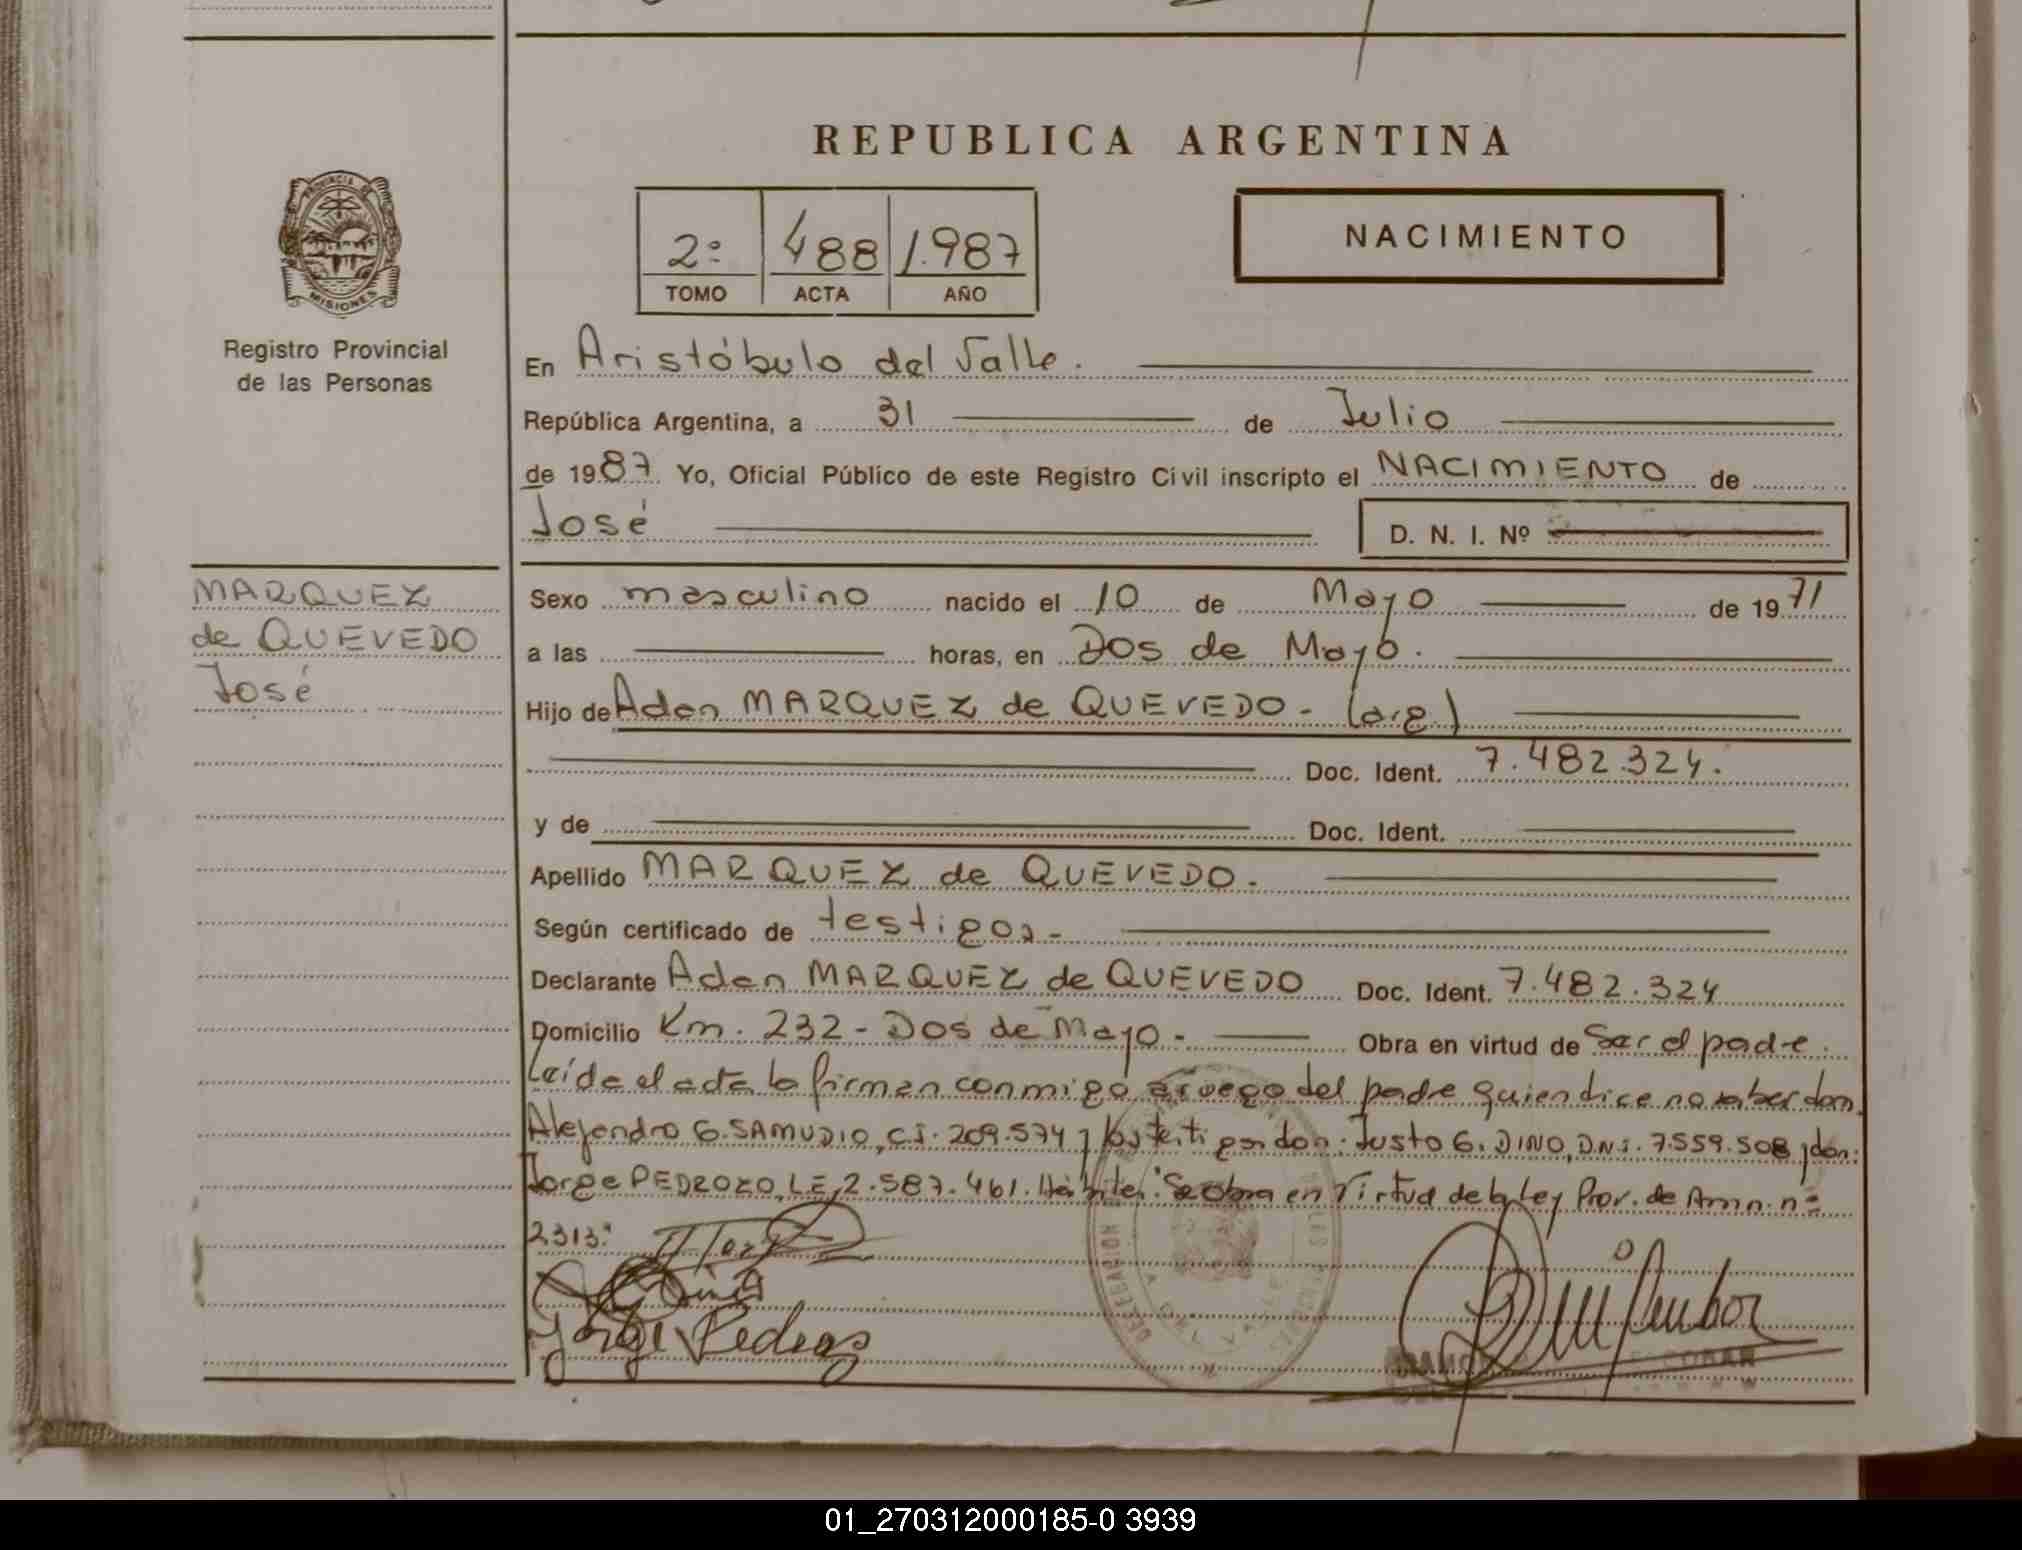 REPUBLICA ARGENTINA
PROVINCIA DE
MISIONES
Registro Provincial
de las Personas
2º 488 1.987
TOMO ACTA AÑO
NACIMIENTO
En Aristóbulo del Valle.
República Argentina, a 31 de Julio
de 1987 Yo, Oficial Público de este Registro Civil inscripto el NACIMIENTO de
José D. N. I. Nº
MARQUEZ
de QUEVEDO
José
Sexo masculino nacido el 10 de Mayo de 1971
a las horas, en Dos de Mayo.
Hijo de Aden MARQUEZ de QUEVEDO - (arg.)
Doc. Ident. 7.482.324.
y de Doc. Ident.
Apellido MARQUEZ de QUEVEDO.
Según certificado de testigos-
Declarante Aden MARQUEZ de QUEVEDO Doc. Ident. 7.482.324
Domicilio Km. 232 - Dos de Mayo.- Obra en virtud de ser el padre.
Leída el acta la firman conmigo a ruego del padre quien dice no saber don
Alejandro G. SAMUDIO, C.I. 209.574 y los testigos don: Justo G. DINO, D.N.I. 7.559.508 y don:
Jorge PEDROZO, L.E. 2.587.461. Hábiles. Se obra en Virtud de la Ley Prov. de Amn. nº
2313.
Jorge Pedroso
DELEGACION
01_270312000185-0 3939